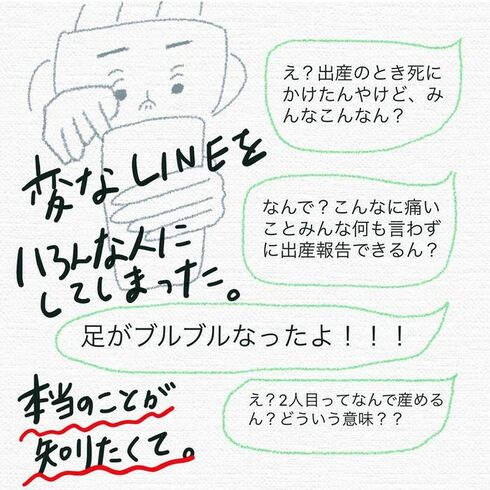 え？出産のとき死に
かけたんやけど、み
んなこんなん？
変なLINEを
いろんな人に
してしまった。
なんで？こんなに痛い
ことみんな何も言わず
に出産報告できるん？
足がブルブルなったよ！！！
本当のことが
知りたくて。
え？2人目ってなんで産める
ん？どういう意味？？